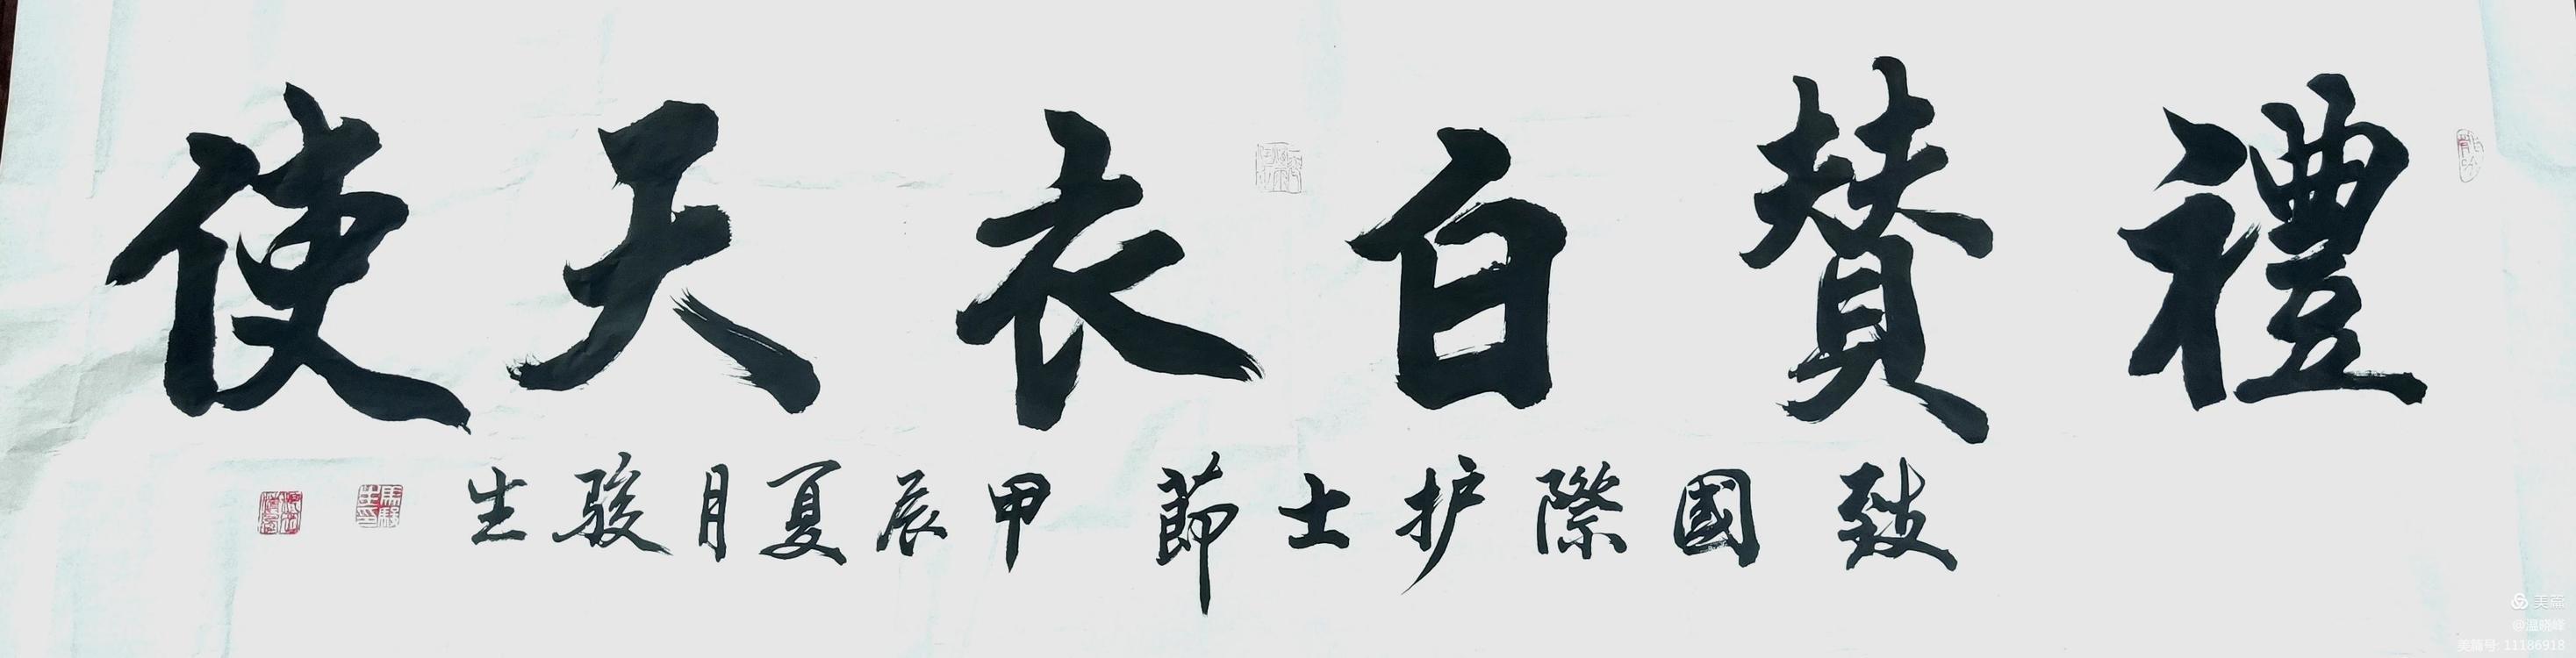 禮贊白衣天使
致國際护士節 甲辰夏月駿生
馬駿生印
美篇
@溫晓峰
美篇号: 11186918